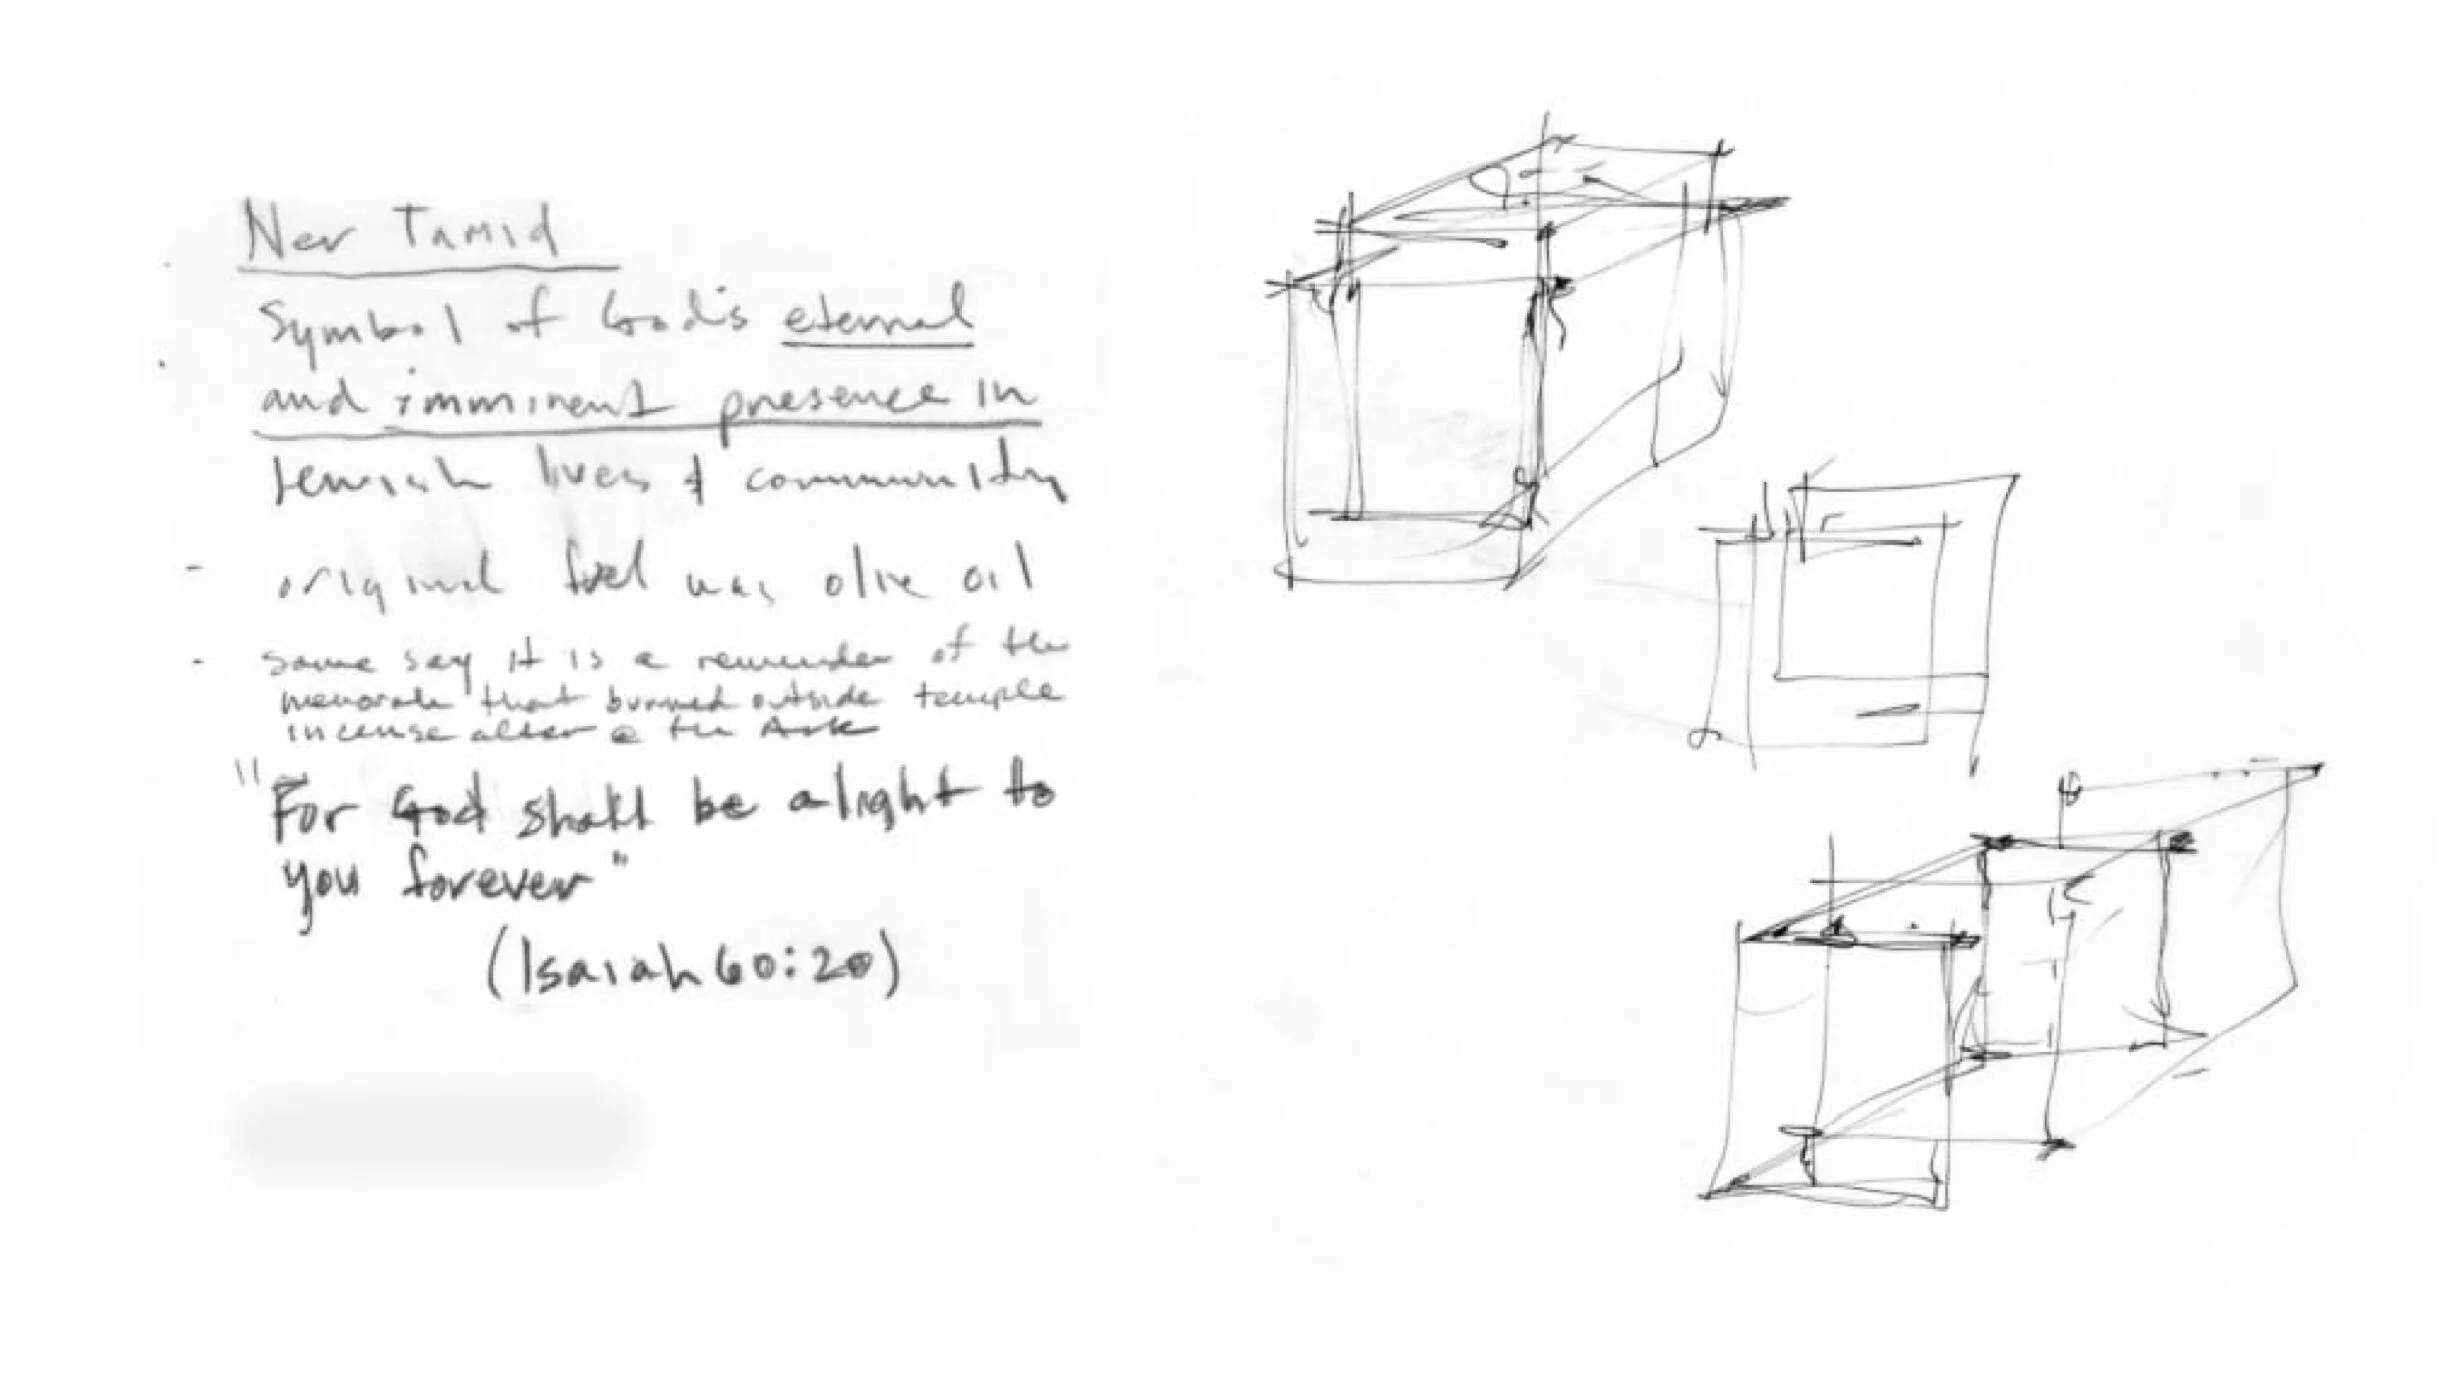 Ner Tamid
Symbol of God's eternal
and imminent presence in
Jewish lives & community
- original fuel was olive oil
- some say it is a reminder of the
menorah that burned outside temple
incense alter @ the Ark
"For God shall be a light to
you forever"
(Isaiah 60:20)